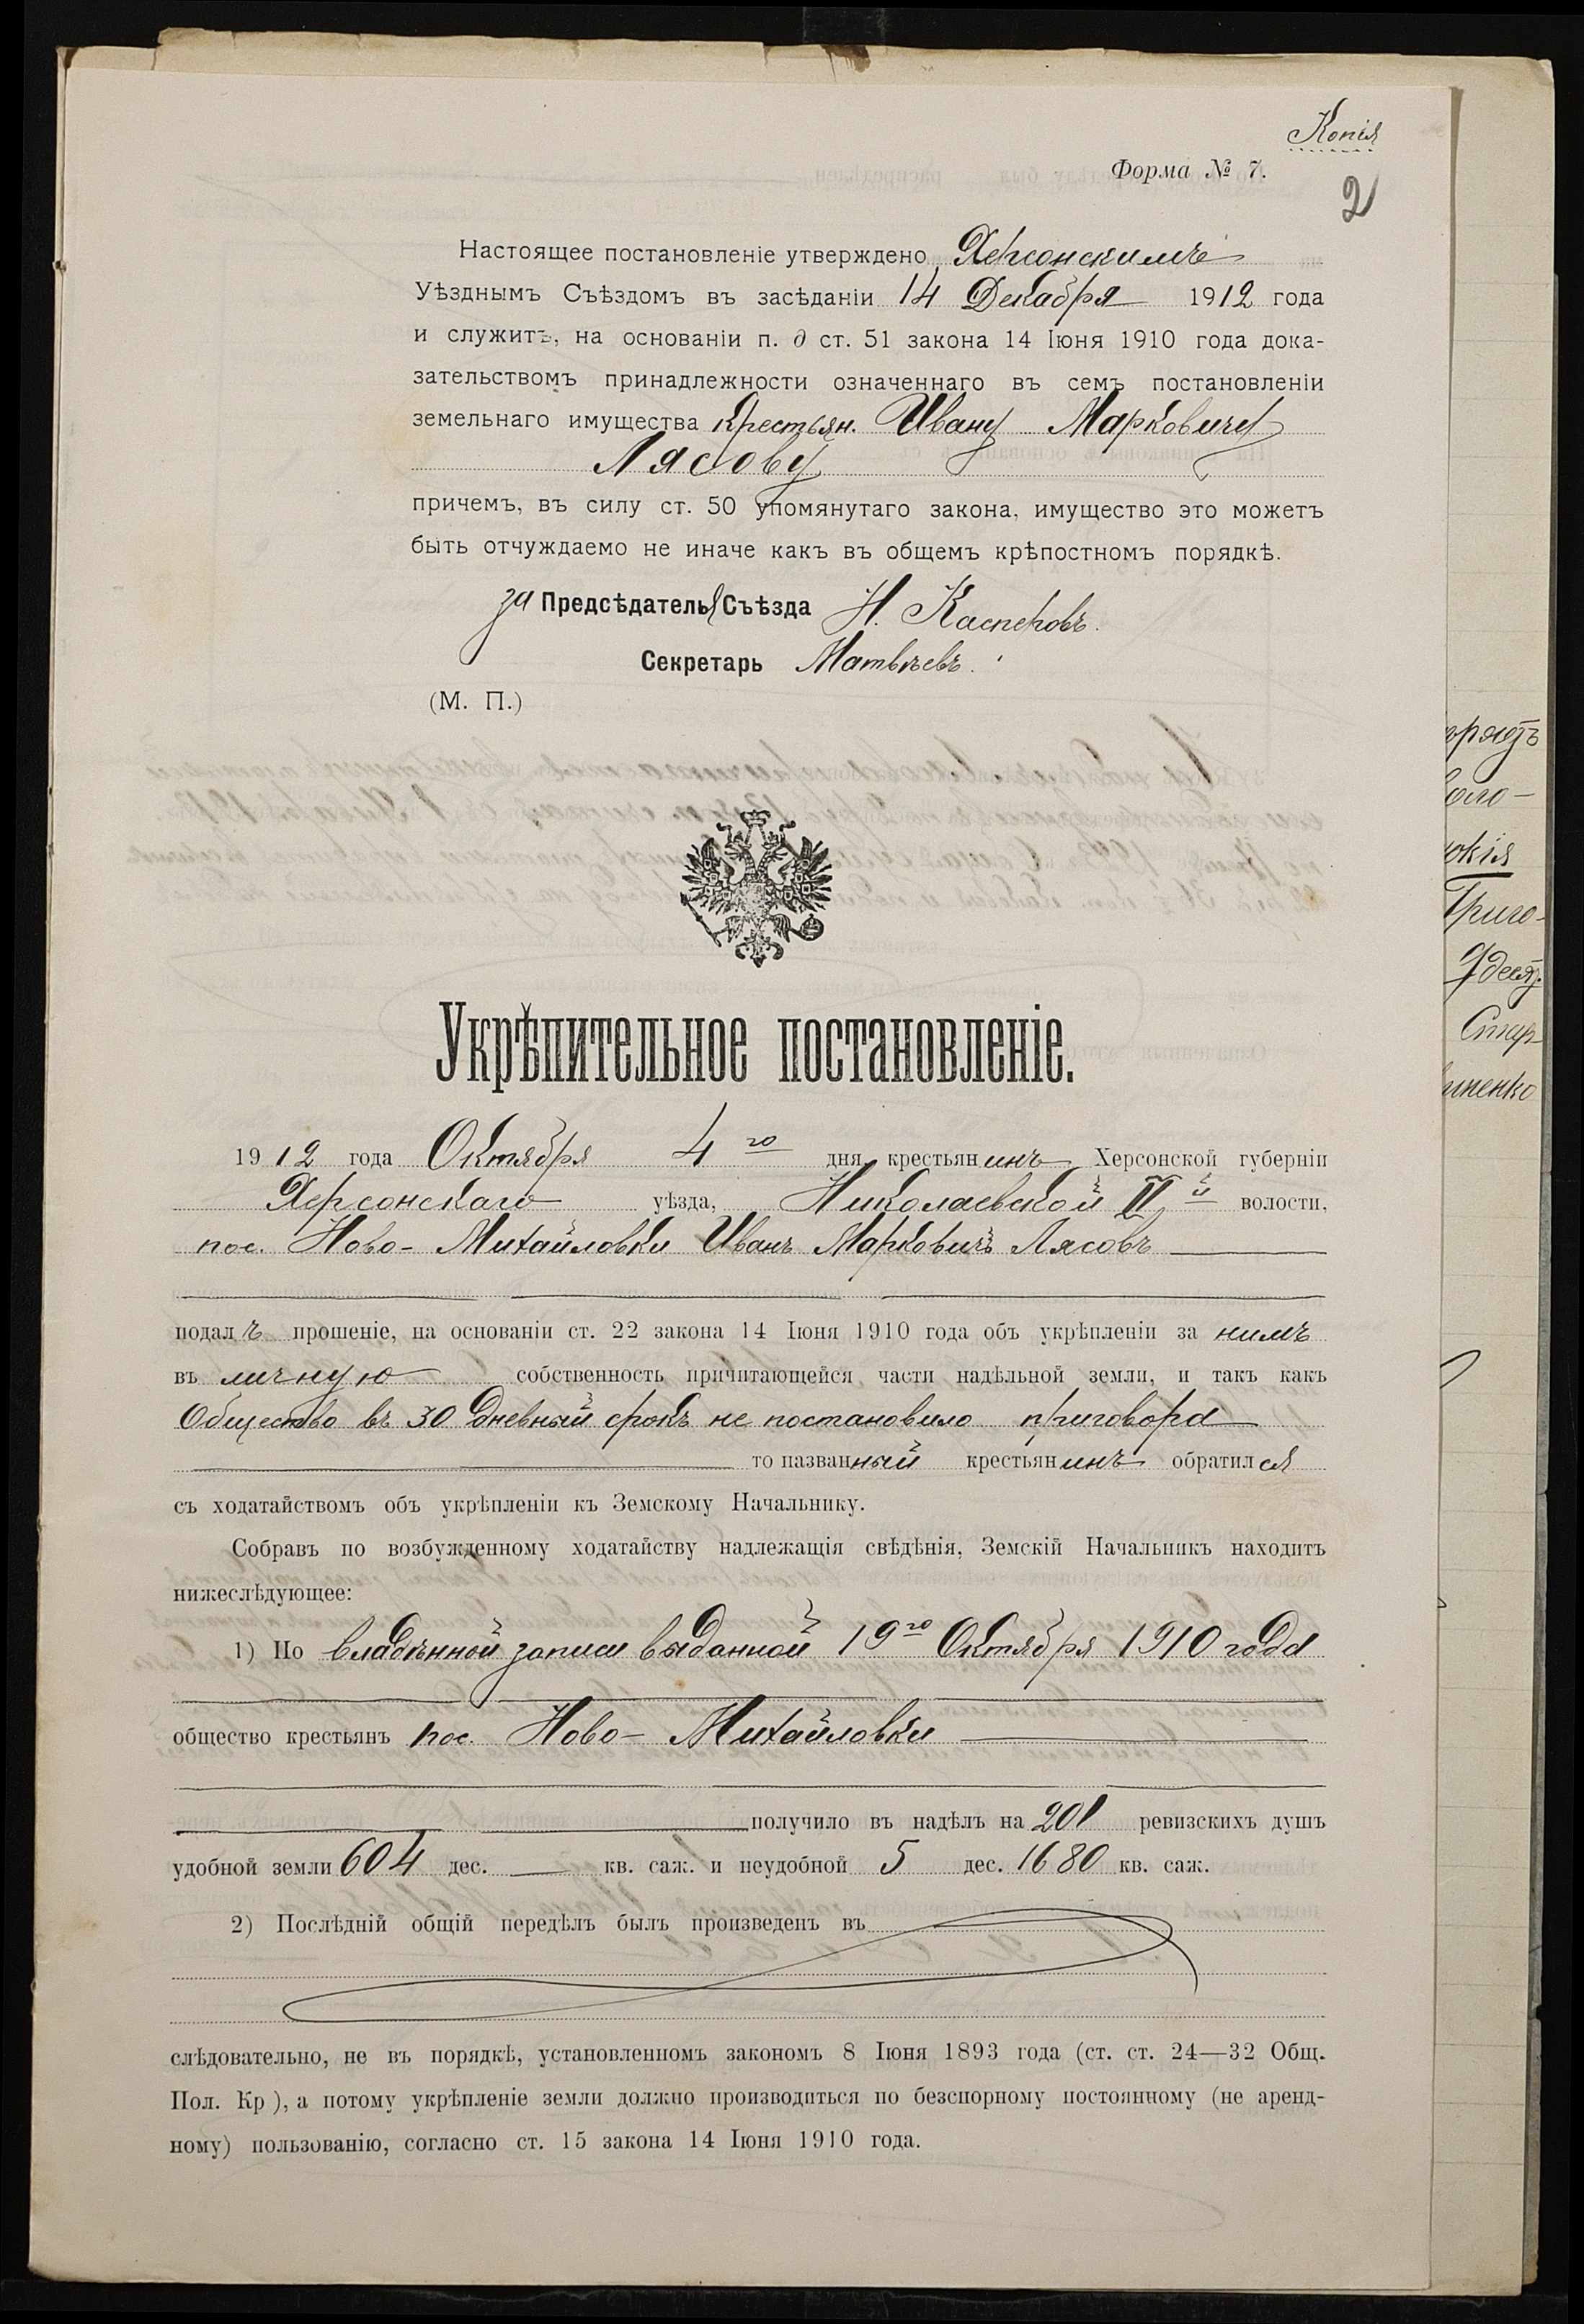 Копія
Форма № 7.
2
Настоящее постановленіе утверждено Херсонскимъ
Уѣзднымъ Съѣздомъ въ засѣданіи 14 Декабря 1912 года
и служитъ, на основаніи п. д ст. 51 закона 14 Іюня 1910 года дока-
зательствомъ принадлежности означеннаго въ семъ постановленіи
земельнаго имущества крестьян. Ивану Марковичу
Лясову
причемъ, въ силу ст. 50 упомянутаго закона, имущество это можетъ
быть отчуждаемо не иначе какъ въ общемъ крѣпостномъ порядкѣ.
за Предсѣдателя Съѣзда Н. Касперовъ.
Секретарь Матвѣевъ.
(М. П.)
Укрѣпительное постановленіе.
1912 года Октября 4го дня, крестьянинъ Херсонской губерніи
Херсонскаго уѣзда, Николаевской II й волости,
пос. Ново-Михайловки Иванъ Марковичъ Лясовъ
подалъ прошеніе, на основаніи ст. 22 закона 14 Іюня 1910 года объ укрѣпленіи за нимъ
въ личную собственность причитающейся части надѣльной земли, и такъ какъ
Общество въ 30 дневный срокъ не постановило приговора
то названный крестьянинъ обратился
съ ходатайствомъ объ укрѣпленіи къ Земскому Начальнику.
Собравъ по возбужденному ходатайству надлежащія свѣдѣнія, Земскій Начальникъ находитъ
нижеслѣдующее:
1) По владѣнной записи выданной 19го Октября 1910 года
общество крестьянъ пос. Ново-Михайловки
получило въ надѣлъ на 201 ревизскихъ душъ
удобной земли 604 дес. — кв. саж. и неудобной 5 дес. 1680 кв. саж.
2) Послѣдній общій передѣлъ былъ произведенъ въ
слѣдовательно, не въ порядкѣ, установленномъ закономъ 8 Іюня 1893 года (ст. ст. 24—32 Общ.
Пол. Кр ), а потому укрѣпленіе земли должно производиться по безспорному постоянному (не аренд-
ному) пользованію, согласно ст. 15 закона 14 Іюня 1910 года.